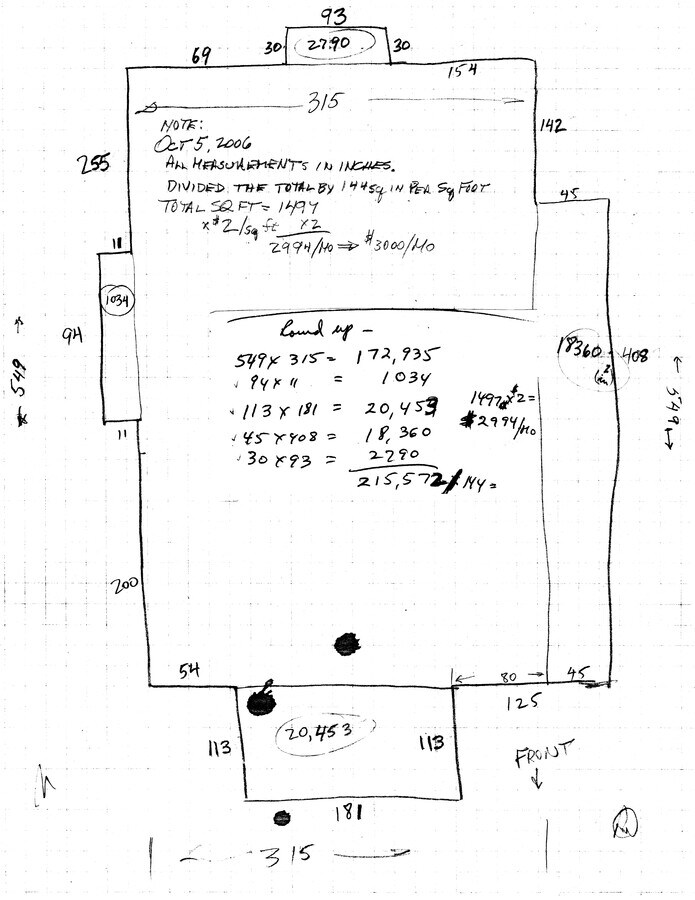 93
69 30 2790 30 154
315
NOTE:
OCT 5, 2006
ALL MEASUREMENTS IN INCHES.
DIVIDED THE TOTAL BY 144 SQ IN PER SQ FOOT
TOTAL SQ FT = 1497
x $2/sq ft x2
2994/MO ⇒ $3000/MO
142
255
45
11
1034
94
← 549 →
11
Round up -
549 x 315 = 172,935
94 x 11 = 1034
113 x 181 = 20,453
45 x 408 = 18,360
30 x 93 = 2790
215,572 / 144 =
1497 x $2 =
$2994/MO
18360
(in²)
408
← 549 →
200
54
← 80 →
45
125
113 20,453 113
181
FRONT
↓
← 315 →